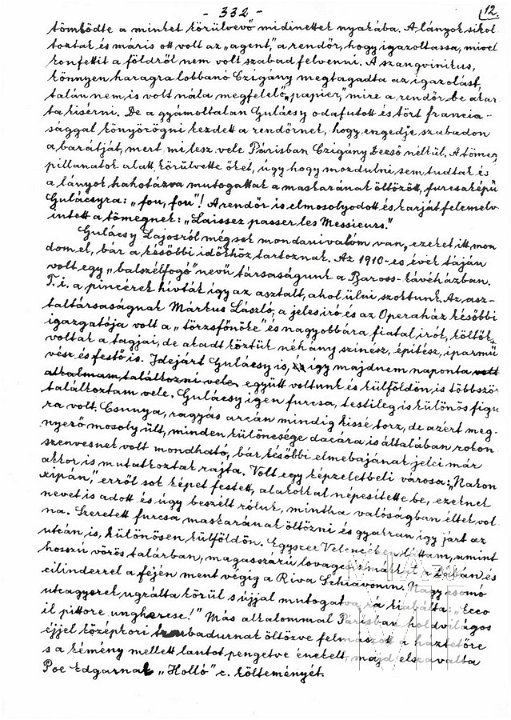 - 332 -
12.
tömködte a minket körülvevő midinettek nyakába. A lányok sikol
toztak és máris ott volt az „agent," a rendőr, hogy igazoltassa, mivel
konfettit a földről nem volt szabad felvenni. A szangvinikus,
könnyen haragra lobbanó Czigány megtagadta az igazolást,
talán nem is volt nála megfelelő „papier," mire a rendőr be akar
ta kisérni. De a gyámoltalan Gulácsy odafutott és tört francia-
sággal könyörögni kezdett a rendőrnek, hogy engedje szabadon
a barátját, mert mi lesz vele Párisban Czigány Dezső nélkül. A tömeg
pillanatok alatt körülvette őket, úgy hogy mozdulni sem tudtak és
a lányok kahotázva mutogattak a maskarának öltözött, furcsa képű
Gulácsyra: „fou, fou"! A rendőr is elmosolyodott és karját felemelve
intett a tömegnek: „Laissez passer les Messieurs."
Gulácsy Lajosról még sok mondanivalóm van, ezeket itt mon
dom el, bár a későbbi időkhöz tartoznak. Az 1910-es évek táján
volt egy „balszélfogó" nevű társaságunk a Baross-kávéházban.
T. i. a pincérek hívták így az asztalt, ahol ülni szoktunk. Az asz-
taltársaságnak Márkus László, a jeles író és az Operaház későbbi
igazgatója volt a „törzsfőnöke" és nagyobbára fiatal írók, költők
voltak a tagjai, de akadt köztük néhány színész, építész, iparmű
vész és festő is. Idejárt Gulácsy is, így majdnem naponta volt
alkalmam találkozni vele, együtt voltunk és külföldön is többször
találkoztam vele. Gulácsy igen furcsa, testileg is különös figu
ra volt. Csunya, ragyás arcán mindig kissé torz, de azért meg-
nyerő mosoly ült, minden különcsége dacára is általában rokon
szenvesnek volt mondható, bár későbbi elmebajának jelei már
akkor is mutatkoztak rajta. Volt egy képzeletbeli városa: „Nakon
xipán," erről sok képet festett, alakokkal népesítette be, ezeknek
nevet is adott és úgy beszélt róluk, mintha valóságban éltek vol
na. Szeretett furcsa maskarának öltözni és gyakran így járt az
utcán is, különösen külföldön. Egyszer Velencében láttam, amint
hosszú vörös talárban, magasszárú lovagcsizmák lábán és
cilinderrel a fején ment végig a Riva Schiavonin. Nagy csomó
utcagyerek ugrálta körül s ujjal mutogatva rá kiabálta: „Ecco
il pittore ungherese!" Más alkalommal Párisban holdvilágos
éjjel középkori trubadurnak öltözve felmászott a háztetőre
s a kémény mellett lantot pengetve énekelt, majd elszavalta
Poe Edgarnak „Holló" c. költeményét.